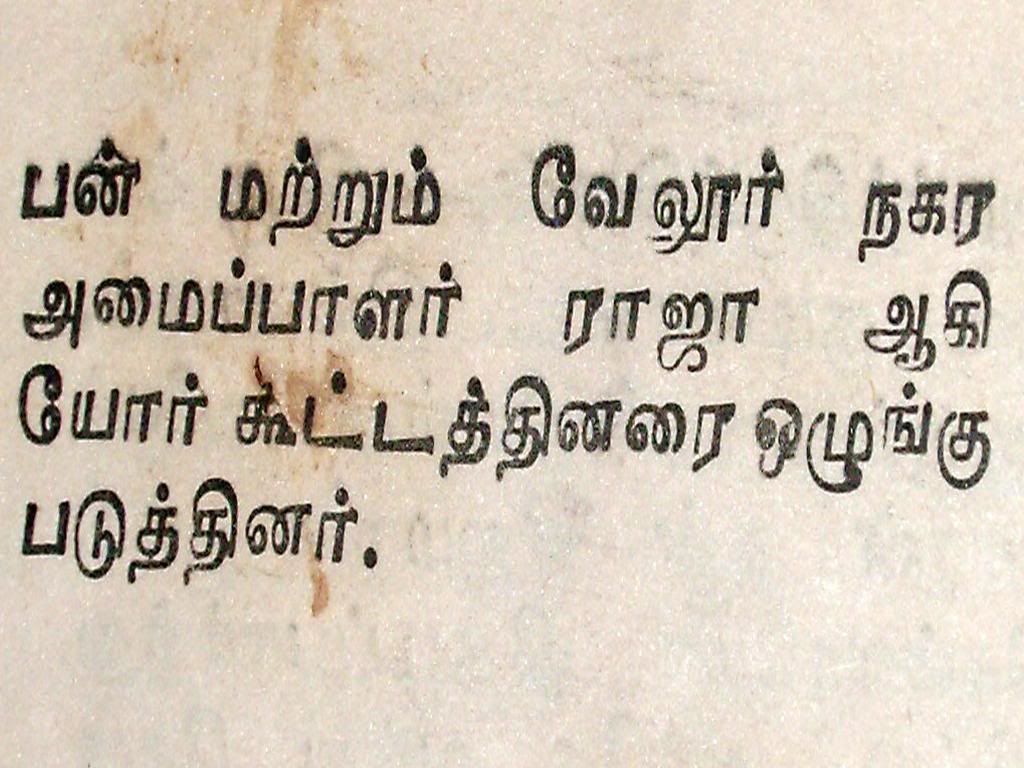 பன் மற்றும் வேலூர் நகர
அமைப்பாளர் ராஜா ஆகி
யோர் கூட்டத்தினரை ஒழுங்கு
படுத்தினர்.